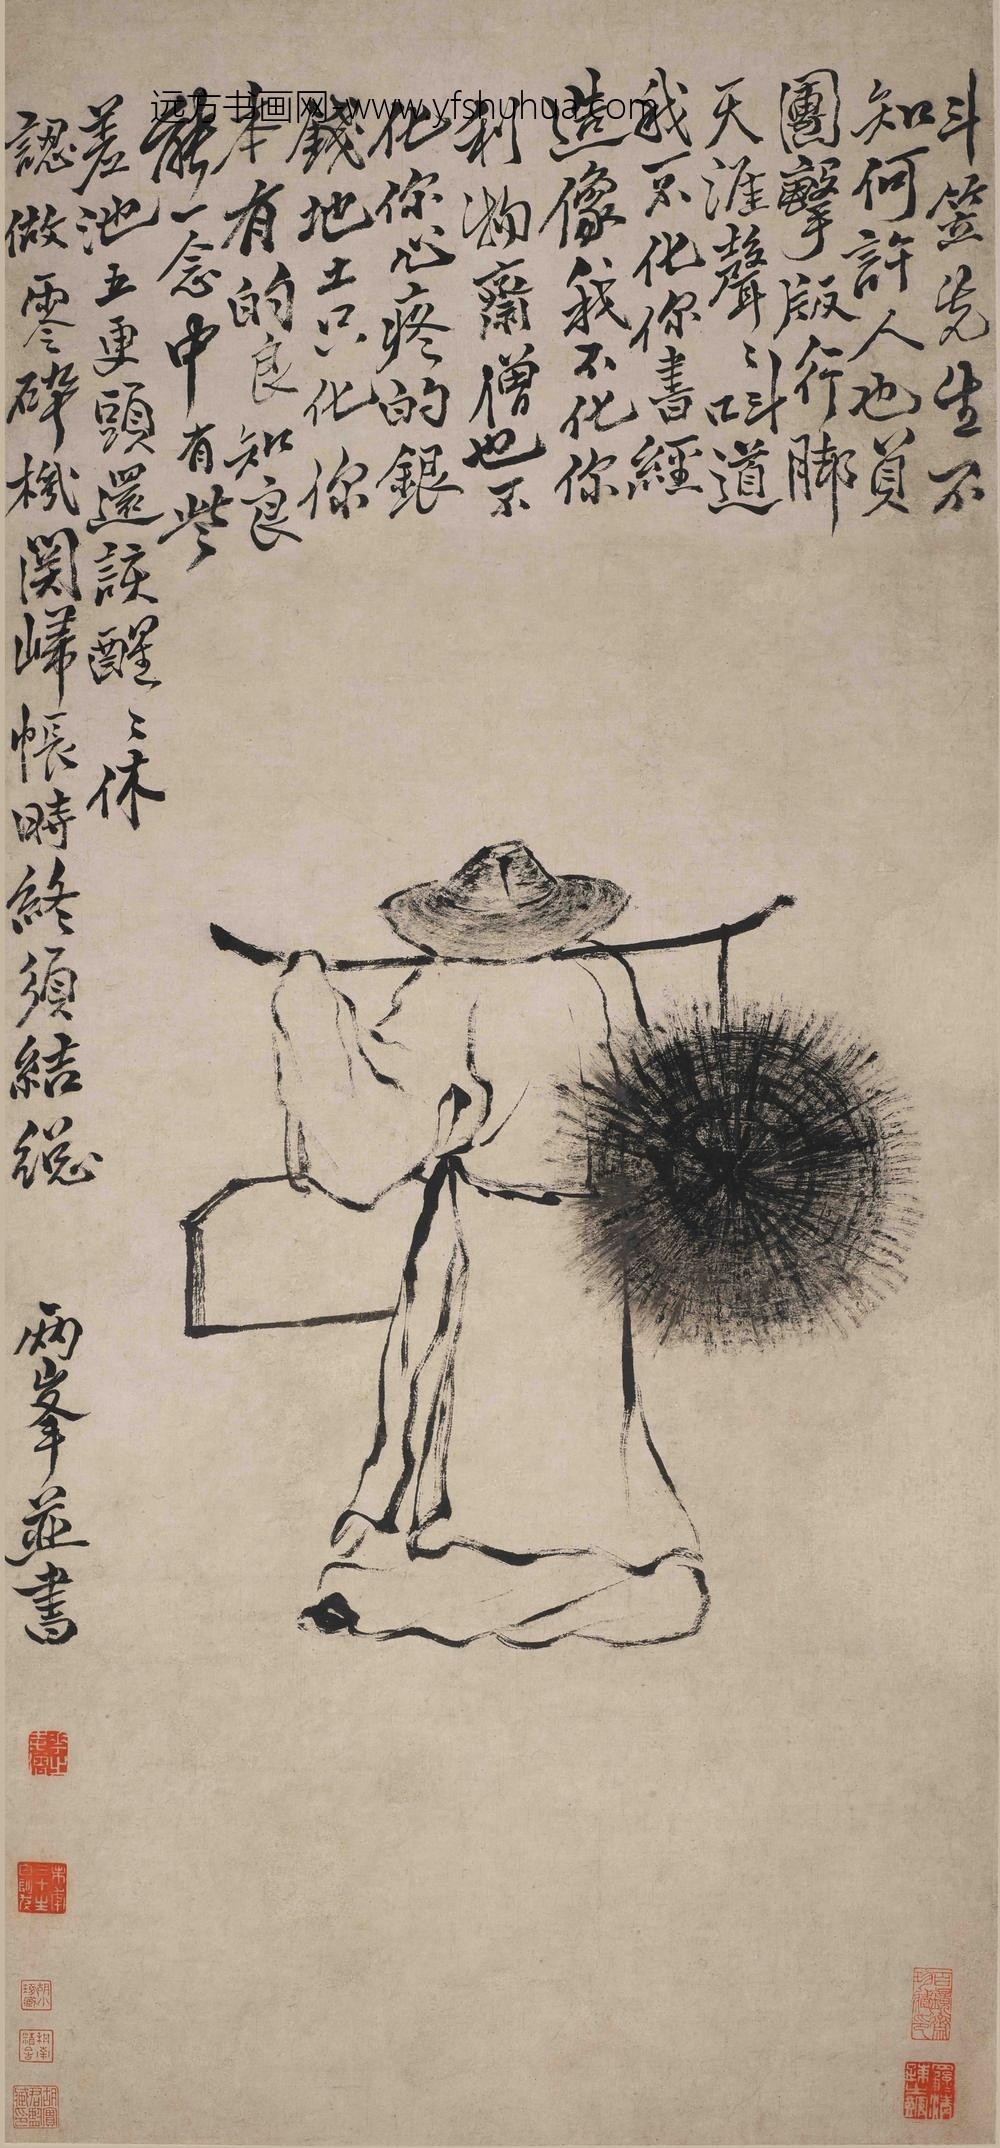 远方书画网-www.yfshuhua.com
斗笠先生不
知何許人也負
團擊版行脚
天涯聲〻叫道
我不化你書經
造像我不化你
利物齋僧也不
化你心疼的銀
錢地土只化你
本有的良知良
能一念中有些
差池五更頭還該醒〻休
認做零碎機関歸帳時終須結總
兩峯並書